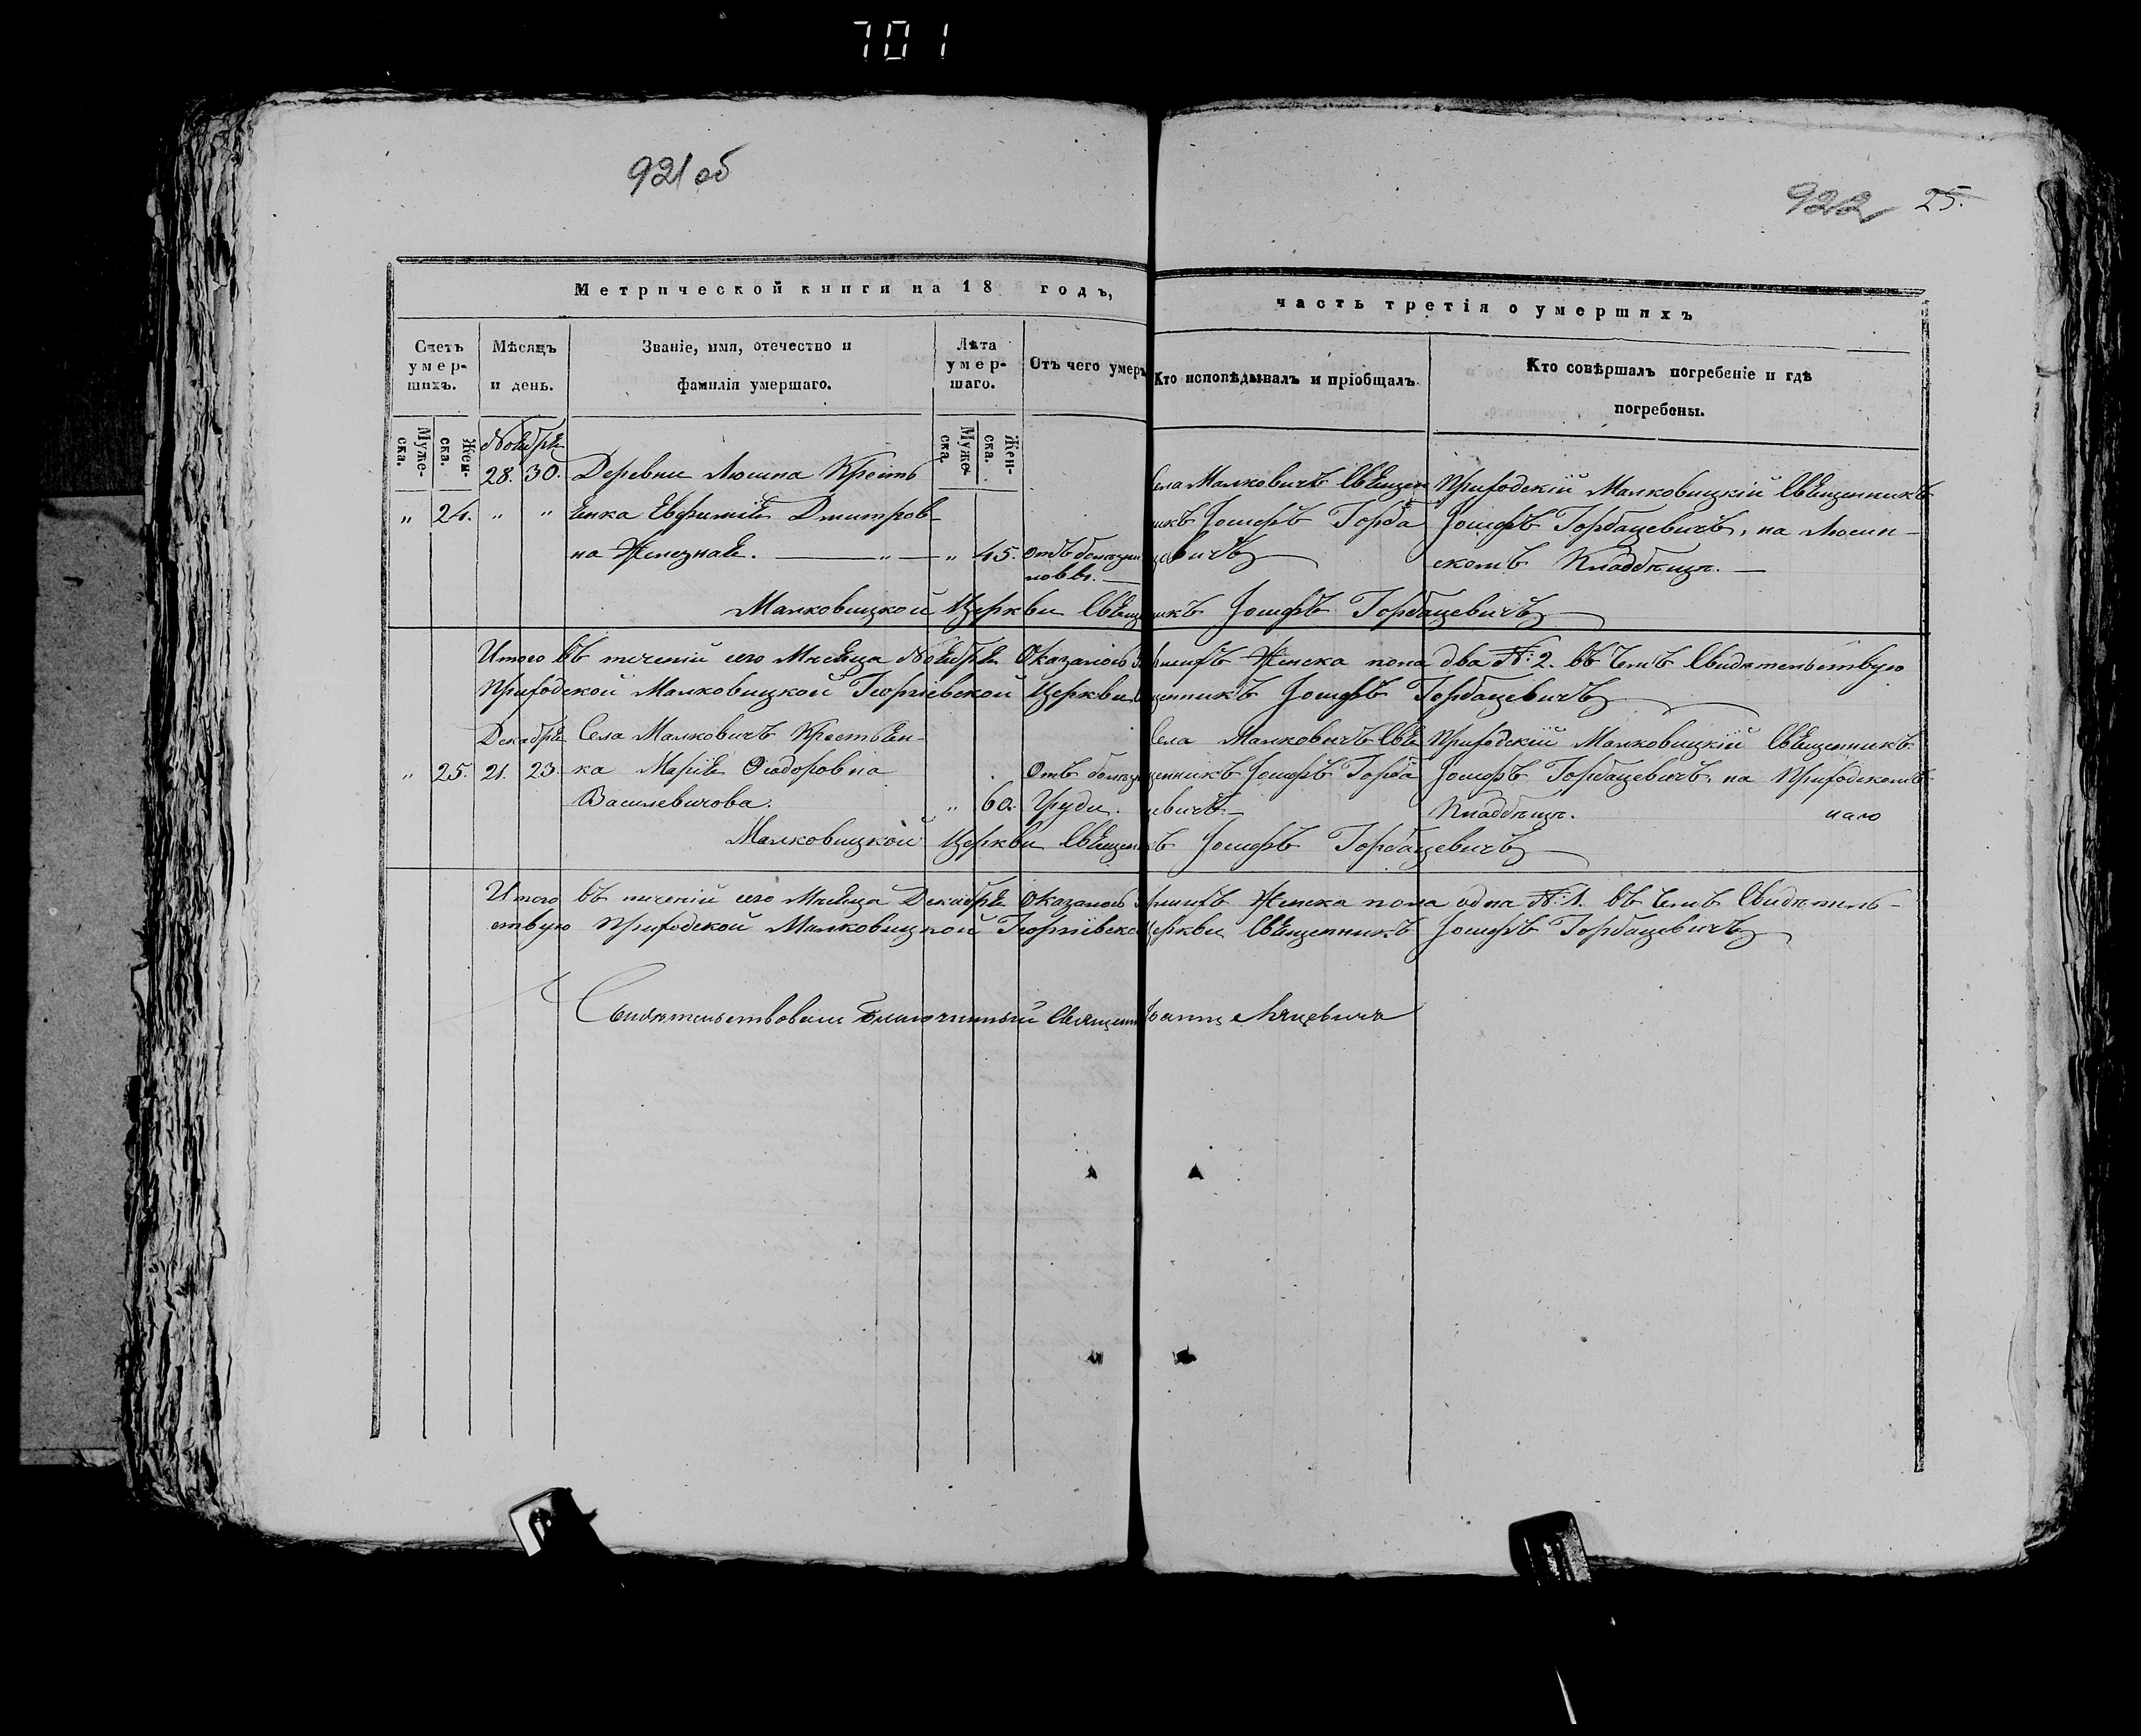 701
921 об
922 25.
Метрической книги на 18 годъ,
часть третія о умершихъ
Счетъ умер-шихъ.
Муже-ска.
Жен-ска.
Мѣсяцъ и день.
Званіе, имя, отечество и фамилія умершаго.
Лѣта умер-шаго.
Муже-ска.
Жен-ска.
Отъ чего умеръ
Кто исповѣдывалъ и пріобщалъ.
Кто совѣршалъ погребеніе и гдѣ погребены.
Ноября
28. 30. Деревни Люшна Кресть
„ 24. „ „ янка Евфимія Дмитров-
на Железная. „ „ 45. Отъ болезни
Села Малковичъ Священ
никъ Іосифъ Горба
цевичъ
Приходскій Малковицкій Священникъ
Іосифъ Горбацевичъ, на Люсин-
скомъ Кладбищѣ.
Малковицкой Церкви Священникъ Іосифъ Горбацевичъ
Итого въ теченіи сего Мѣсяца Ноября Оказалось Умершихъ Женска пола два №: 2. въ чемъ Свидѣтельствую
Приходской Малковицкой Георгіевской Церкви Священникъ Іосифъ Горбацевичъ
Декабря Села Малковичъ Крестьян-
„ 25. 21. 23. ка Марія Ѳеодоровна
Василевичова. „ 60.
Отъ болезни
Груди.
Села Малковичъ Свя
щенникъ Іосифъ Горба
цевичъ
Приходскій Малковицкій Священникъ
Іосифъ Горбацевичъ, на Приходскомъ
Кладбищѣ.
Малковицкой Церкви Священникъ Іосифъ Горбацевичъ
Итого въ теченіи сего Мѣсяца Декабря Оказалось Умершихъ Женска пола одна №: 1. въ чемъ Свидѣтель-
ствую Приходской Малковицкой Георгіевской Церкви Священникъ Іосифъ Горбацевичъ
Свидѣтельствовалъ Благочинный Священникъ Іоаннъ